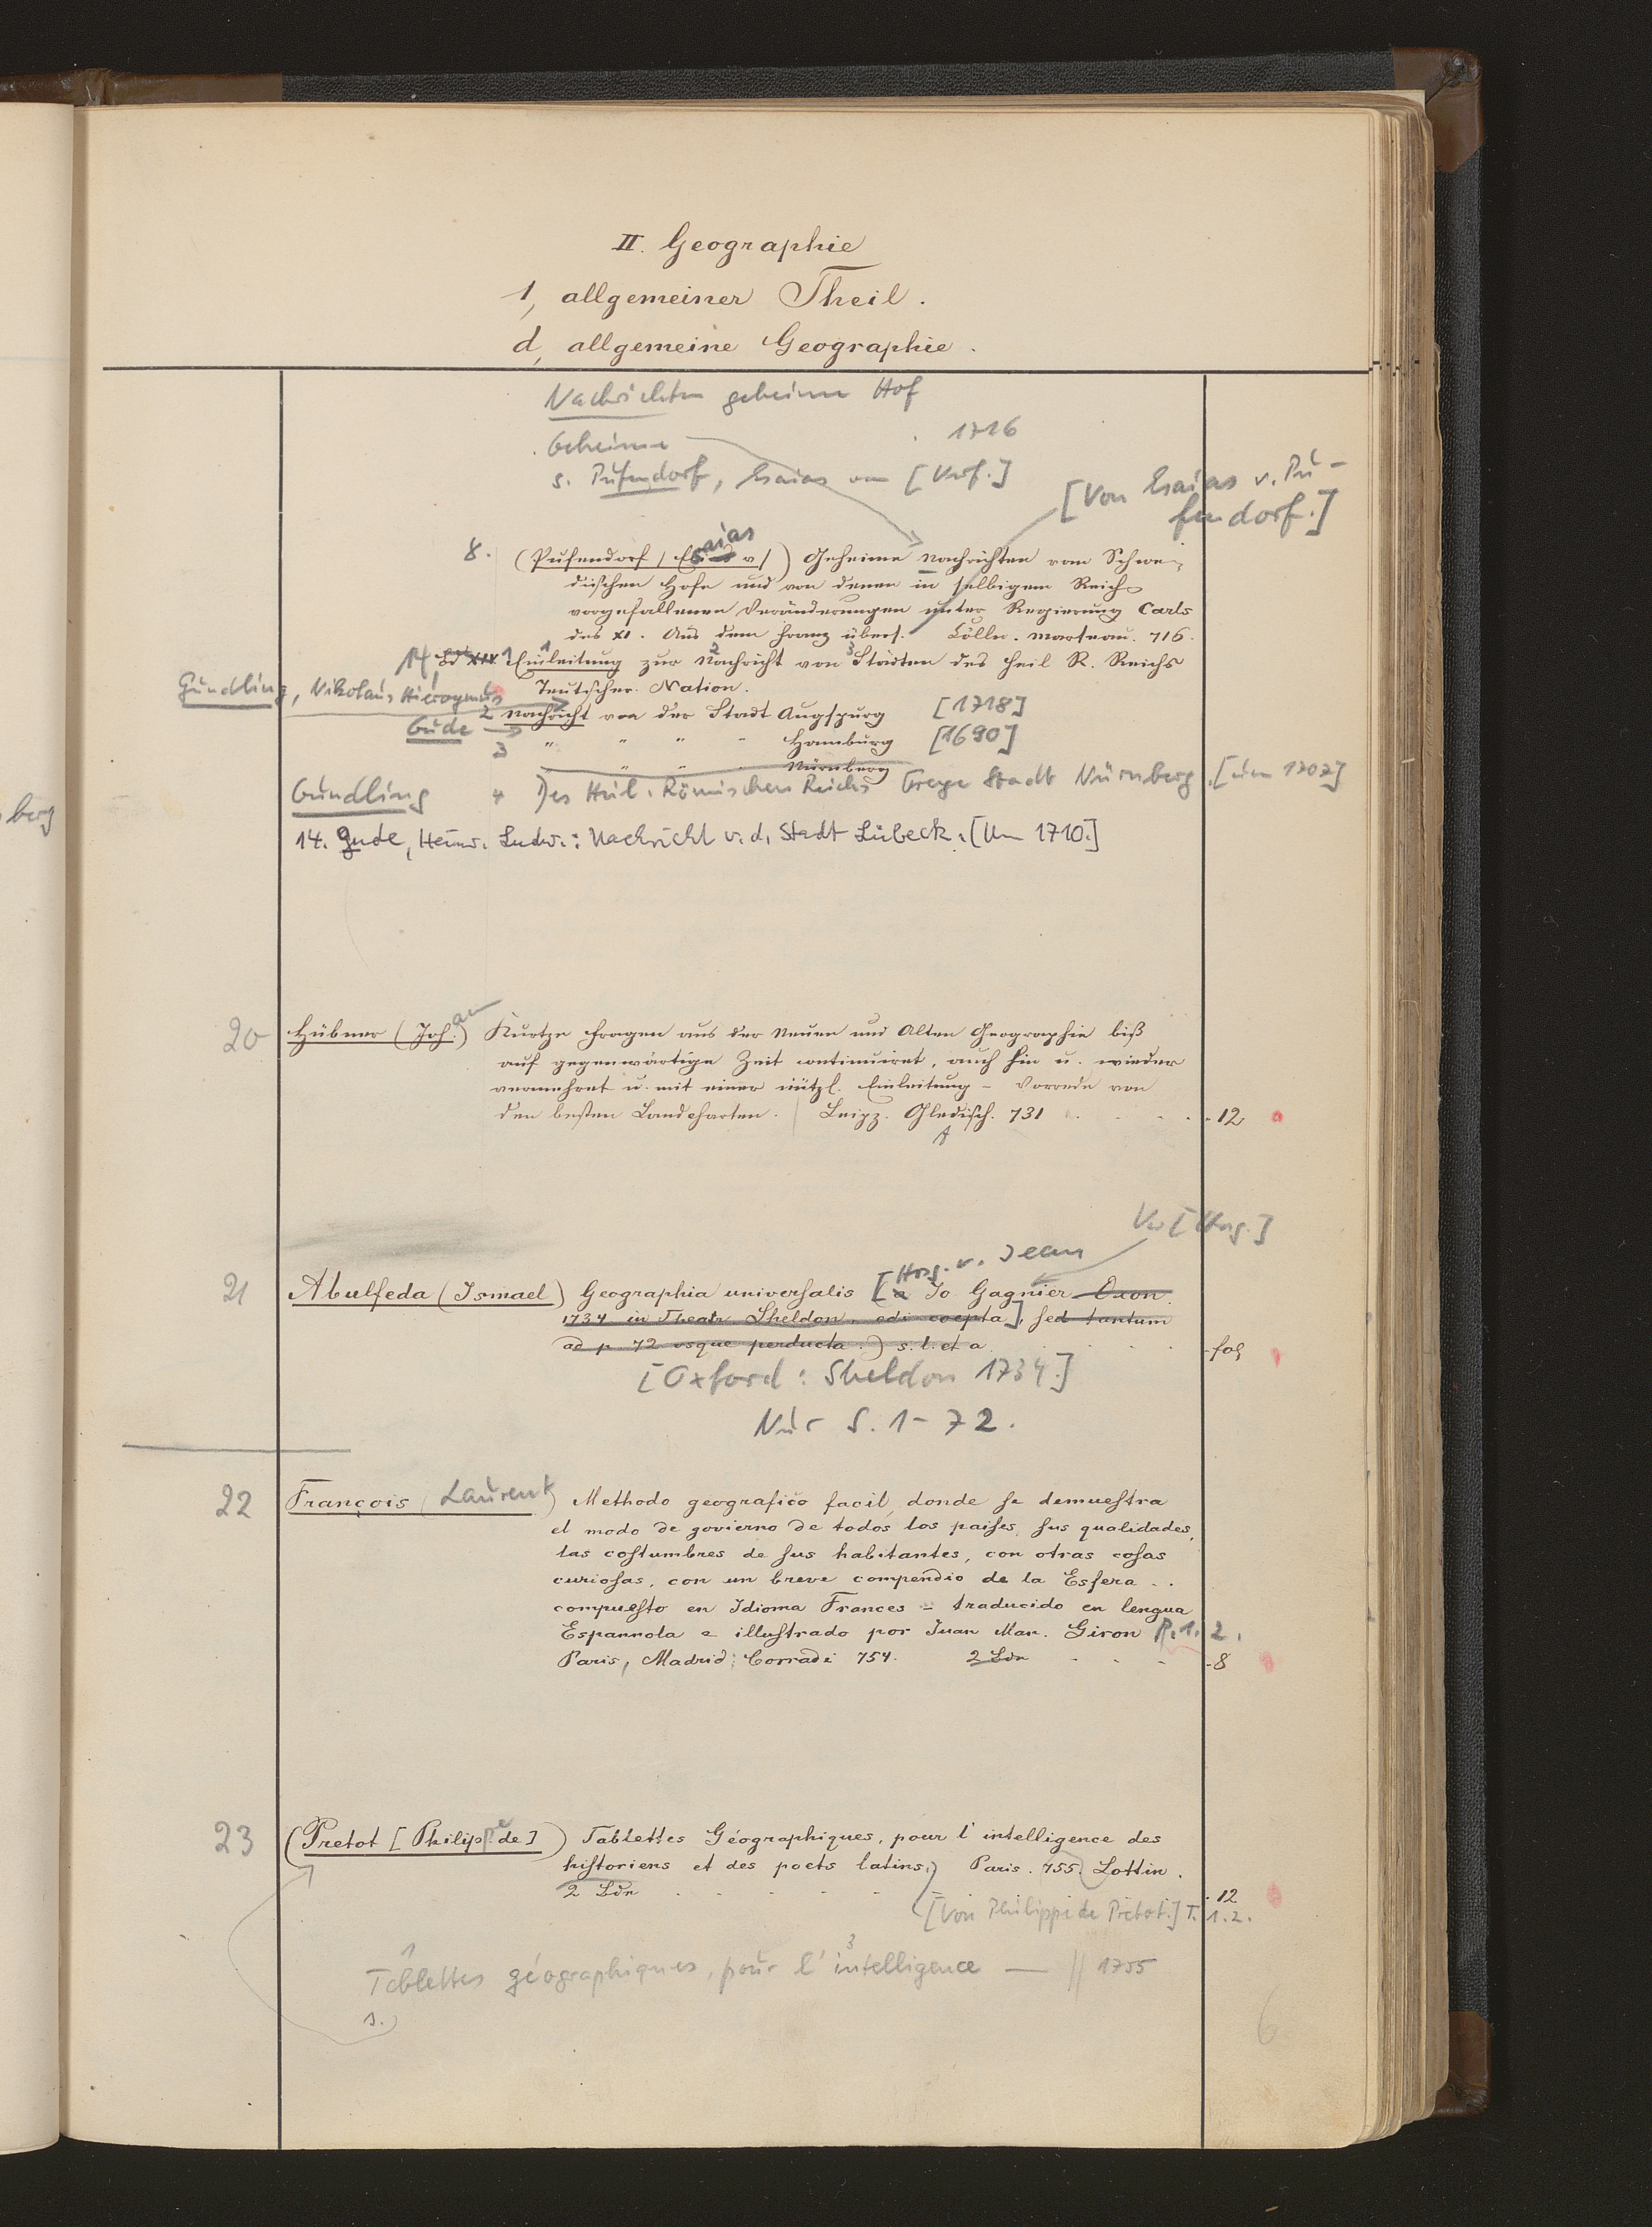 II. Geographie
1, allgemeiner Theil.
d, allgemeine Geographie.
Nachrichten geheime Hof
Geheime 1716
s. Pufendorf, Esaias von [Verf.]
[Von Esaias v. Pu-
fendorf.]
8. (Pufendorf / Esaias v/) Geheime Nachrichten vom Schwe-
dischen Hofe und von denen in selbigem Reich
vorgefallenen Veränderungen unter Regierung Carls
des XI. Aus dem Franz übers. Cölln. Marteau. 716.
14, Bd XIV. 1 Einleitung zur Nachricht von Städten des Heil R. Reichs
Gundling, Nikolaus Hieronymus Teutscher Nation.
2 Nachricht von der Stadt Augspurg [1718]
Gude 3 " " " " Hamburg [1690]
" " " Nürnberg
Gundling 4 Des Heil. Römischen Reichs Freye Stadt Nürnberg. [um 1707]
14. Gude, Heinr. Ludw.: Nachricht v. d. Stadt Lübeck. [Um 1710.]
20 Hübner (Joh.) Kurtze Fragen aus der Neuen und Alten Geographie biß
auf gegenwärtige Zeit continuiret, auch hin u. wieder
vermehret u. mit einer nützl. Einleitung = Vorrede von
den besten Landcharten. Leipz. Gleditsch. 731 . . . 12
Ver[Hrsg.]
[Hrsg. v. Jean
21 Abulfeda (Ismael) Geographia universalis [a Jo Gagnier Oxon.
1734 in Theatr Sheldon. edi coepta], sed tantum
ad p. 72 usque perducta.) s. l. et a. . . . fol
[Oxford: Sheldon 1734.]
Nur S. 1-72.
22 François (Laurent) Methodo geografico facil, donde se demuestra
el modo de govierno de todos los paises, sus qualidades,
las costumbres de sus habitantes, con otras cosas
curiosas, con un breve compendio de la Esfera . .
compuesto en Idioma Frances = traducido en lengua
Espannola e illustrado por Juan Man. Giron P. 1. 2.
Paris, Madrid; Corradi 754. 2 Bde - - - 8
23 (Pretot [Philippe de]) Tablettes Géographiques, pour l'intelligence des
historiens et des poets latins.) Paris. 755. Lottin.
2 Bde . . . . . . 12
[Von Philippe de Prétot.] T. 1. 2.
Tablettes géographiques, pour l'intelligence — // 1755
s.
6
berg